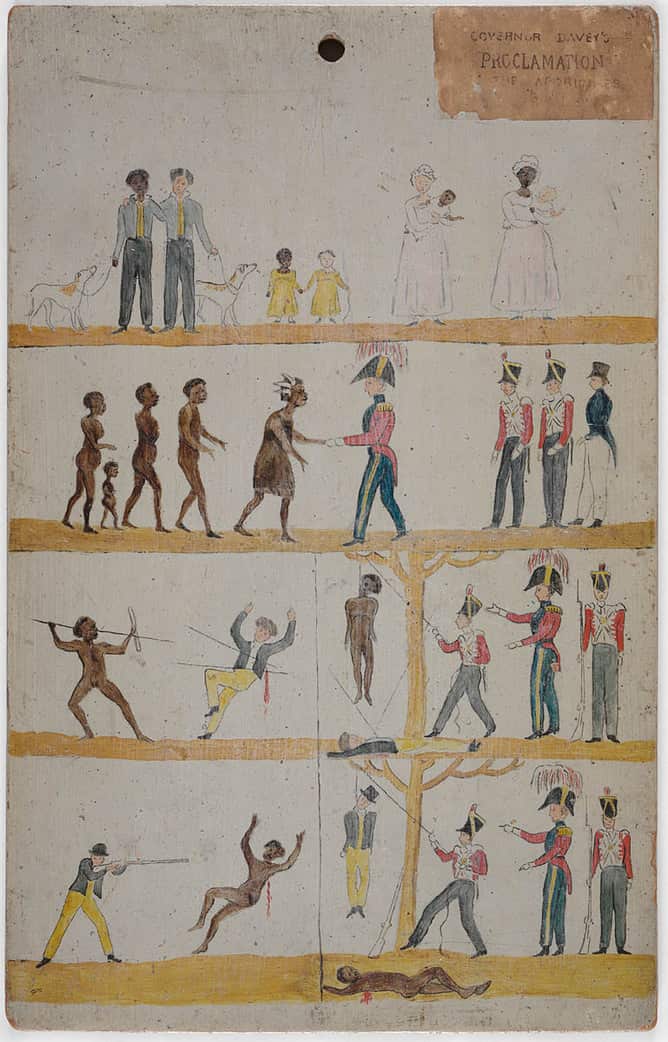 GOVERNOR DAVEY'S
PROCLAMATION
THE ABORIGINES